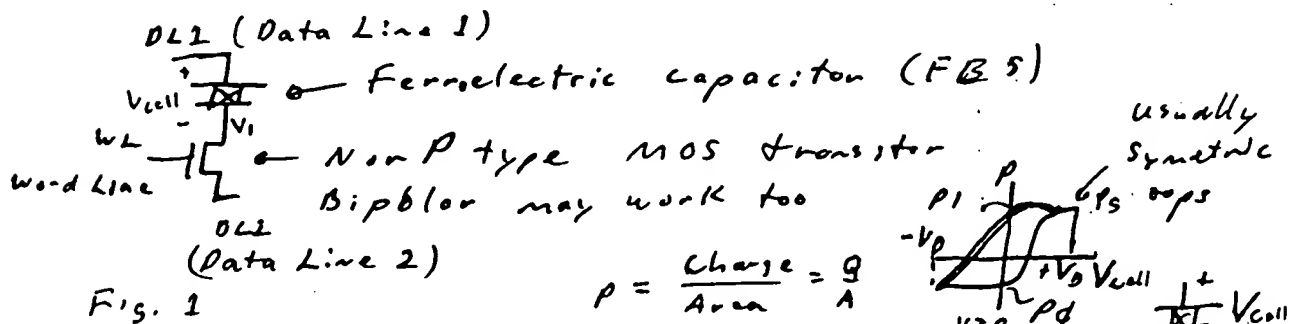 DL1 (Data Line 1)
+
Vcell
-
V1
Ferroelectric capacitor (FE
WL
Word Line
N or P type MOS transistor
Bipolar may work too
DL2
(Data Line 2)
Fig. 1
P = Charge / Area = Q / A
usually
symetric
P
P1
Ps
-VD
+VD Vcell
Pø
+
Vcell